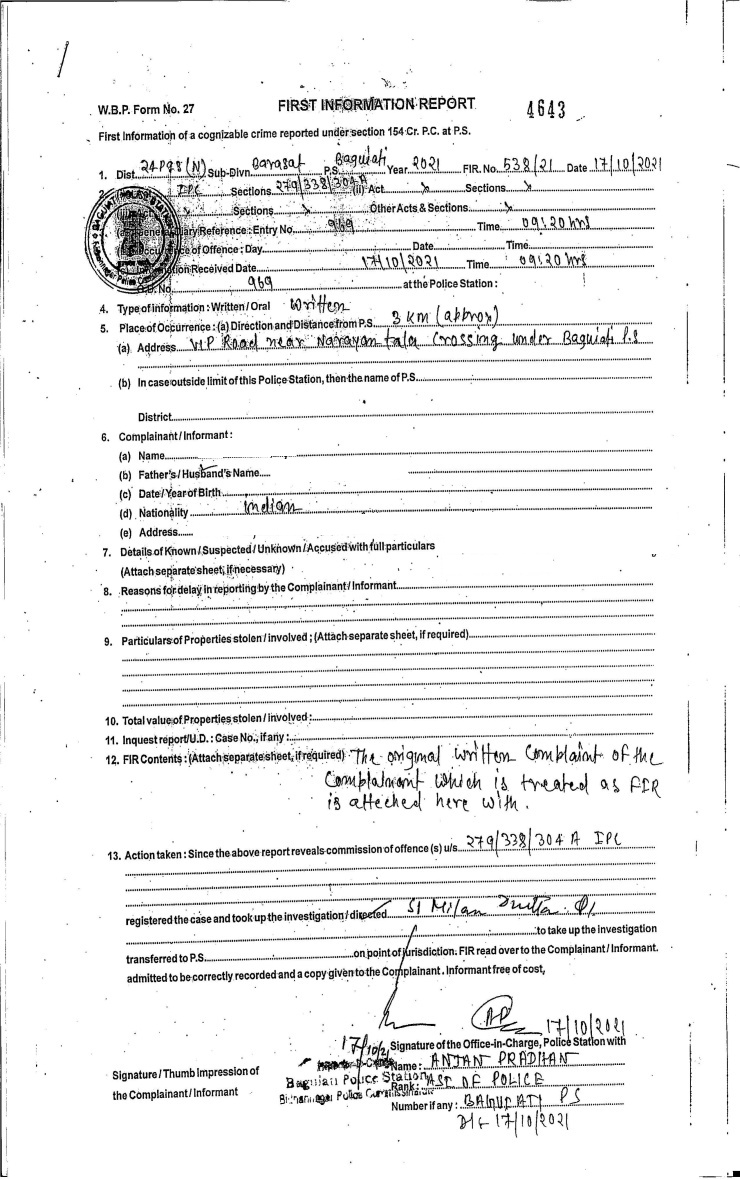 W.B.P. Form No. 27 FIRST INFORMATION REPORT 4643
First Information of a cognizable crime reported under section 154 Cr. P.C. at P.S.
1. Dist. 24 Pgs (N) Sub-Divn. Barasat P.S. Baguiati Year 2021 FIR. No. 538/21 Date 17/10/2021
2. IPC Sections 279/338/304 A (ii) Act. x Sections x
Sections x Other Acts & Sections x
Reference : Entry No. 969 Time 09:20 hrs
of Offence ; Day Date Time
Received Date 17/10/2021 Time 09:20 hrs
No. 969 at the Police Station :
4. Type of information : Written / Oral Written
5. Place of Occurrence : (a) Direction and Distance from P.S. 3 KM (approx)
(a) Address VIP Road near Narayantala Crossing under Baguiati P.S
(b) In case outside limit of this Police Station, then the name of P.S.
District
6. Complainant / Informant :
(a) Name
(b) Father's / Husband's Name
(c) Date / Year of Birth
(d) Nationality Indian
(e) Address
7. Details of Known / Suspected / Unknown / Accused with full particulars
(Attach separate sheet, if necessary)
8. Reasons for delay in reporting by the Complainant / Informant
9. Particulars of Properties stolen / involved ; (Attach separate sheet, if required)
10. Total value of Properties stolen / involved :
11. Inquest report / U.D. : Case No., if any :
12. FIR Contents : (Attach separate sheet, if required) The original written Complaint of the
Complainant which is treated as FIR
is atteched here with.
13. Action taken : Since the above report reveals commission of offence (s) u/s. 279/338/304 A IPC
registered the case and took up the investigation / directed SI Milan
to take up the investigation
transferred to P.S. on point of jurisdiction. FIR read over to the Complainant / Informant.
admitted to be correctly recorded and a copy given to the Complainant. Informant free of cost,
AP 17/10/2021
17/10/21 Signature of the Office-in-Charge, Police Station with
Signature / Thumb Impression of Name : ANJAN PRADHAN
Baguiati Police Station Rank : ASI OF POLICE
the Complainant / Informant Bidhannagar Police Commissionerate Number if any : BAGUIATI PS
Dt- 17/10/2021